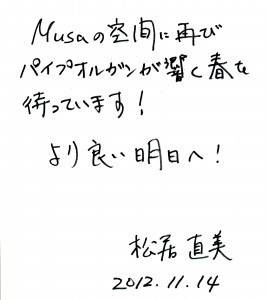 Musaの空間に再び
パイプオルガンが響く春を
待っています!
より良い明日へ!
松居 直美
2012.11.14